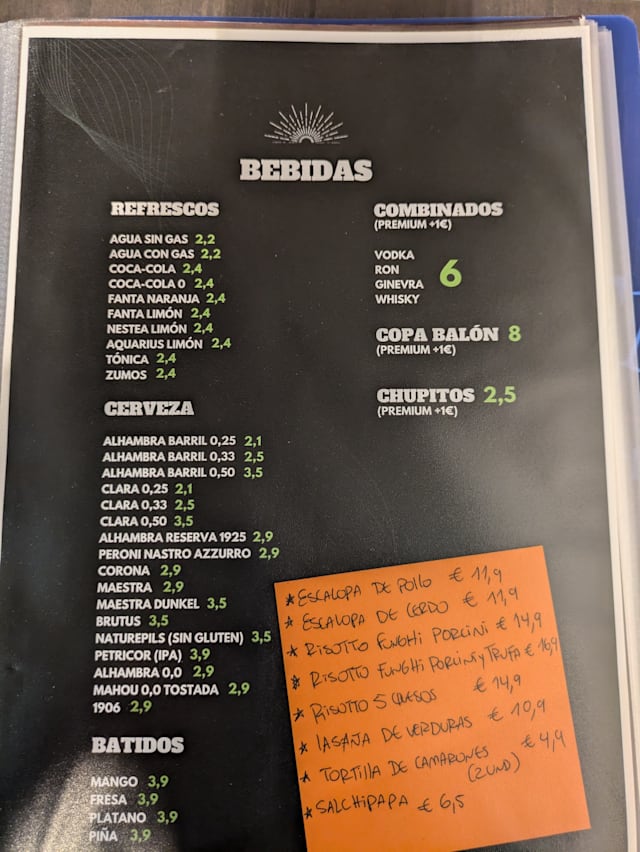 BEBIDAS
REFRESCOS
AGUA SIN GAS 2,2
AGUA CON GAS 2,2
COCA-COLA 2,4
COCA-COLA 0 2,4
FANTA NARANJA 2,4
FANTA LIMÓN 2,4
NESTEA LIMÓN 2,4
AQUARIUS LIMÓN 2,4
TÓNICA 2,4
ZUMOS 2,4
CERVEZA
ALHAMBRA BARRIL 0,25 2,1
ALHAMBRA BARRIL 0,33 2,5
ALHAMBRA BARRIL 0,50 3,5
CLARA 0,25 2,1
CLARA 0,33 2,5
CLARA 0,50 3,5
ALHAMBRA RESERVA 1925 2,9
PERONI NASTRO AZZURRO 2,9
CORONA 2,9
MAESTRA 2,9
MAESTRA DUNKEL 3,5
BRUTUS 3,5
NATUREPILS (SIN GLUTEN) 3,5
PETRICOR (IPA) 3,9
ALHAMBRA 0,0 2,9
MAHOU 0,0 TOSTADA 2,9
1906 2,9
BATIDOS
MANGO 3,9
FRESA 3,9
PLATANO 3,9
PIÑA 3,9
COMBINADOS
(PREMIUM +1€)
VODKA
RON
GINEVRA
WHISKY
6
COPA BALÓN 8
(PREMIUM +1€)
CHUPITOS 2,5
(PREMIUM +1€)
* ESCALOPA DE POLLO € 11,9
* ESCALOPA DE CERDO € 11,9
* RISOTTO FUNGHI PORCINI € 14,9
* RISOTTO FUNGHI PORCINI Y TRUFA € 16,9
* RISOTTO 5 QUESOS € 14,9
* LASAJA DE VERDURAS € 10,9
* TORTILLA DE CAMARONES € 4,9
(2UND)
* SALCHIPAPA € 6,5